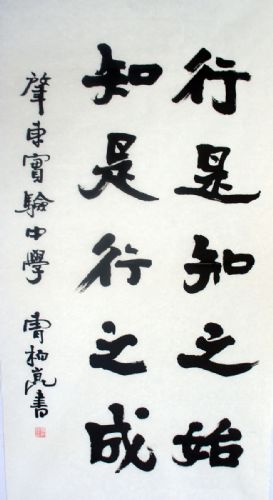 行是知之始
知是行之成
肇東實驗中學 柏書